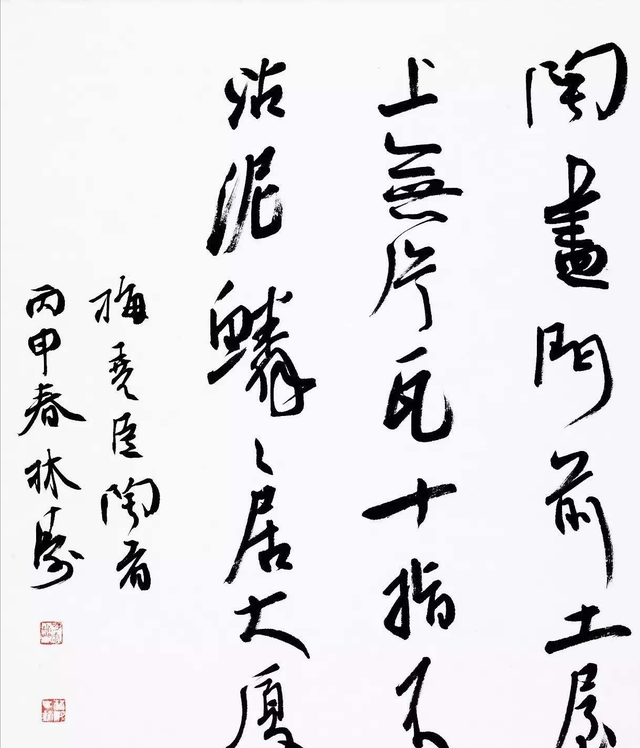 陶盡門前土屋
上無片瓦十指不
沾泥鱗〻居大廈
梅堯臣陶者
丙申春林